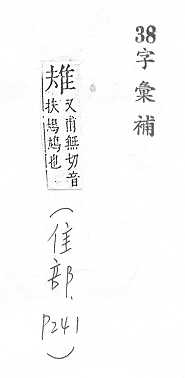 38字彙補
又甫無切音
鳩也
（隹部、P241）